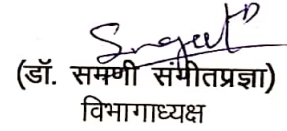 (डॉ. समणी संगीतप्रज्ञा)
विभागाध्यक्ष